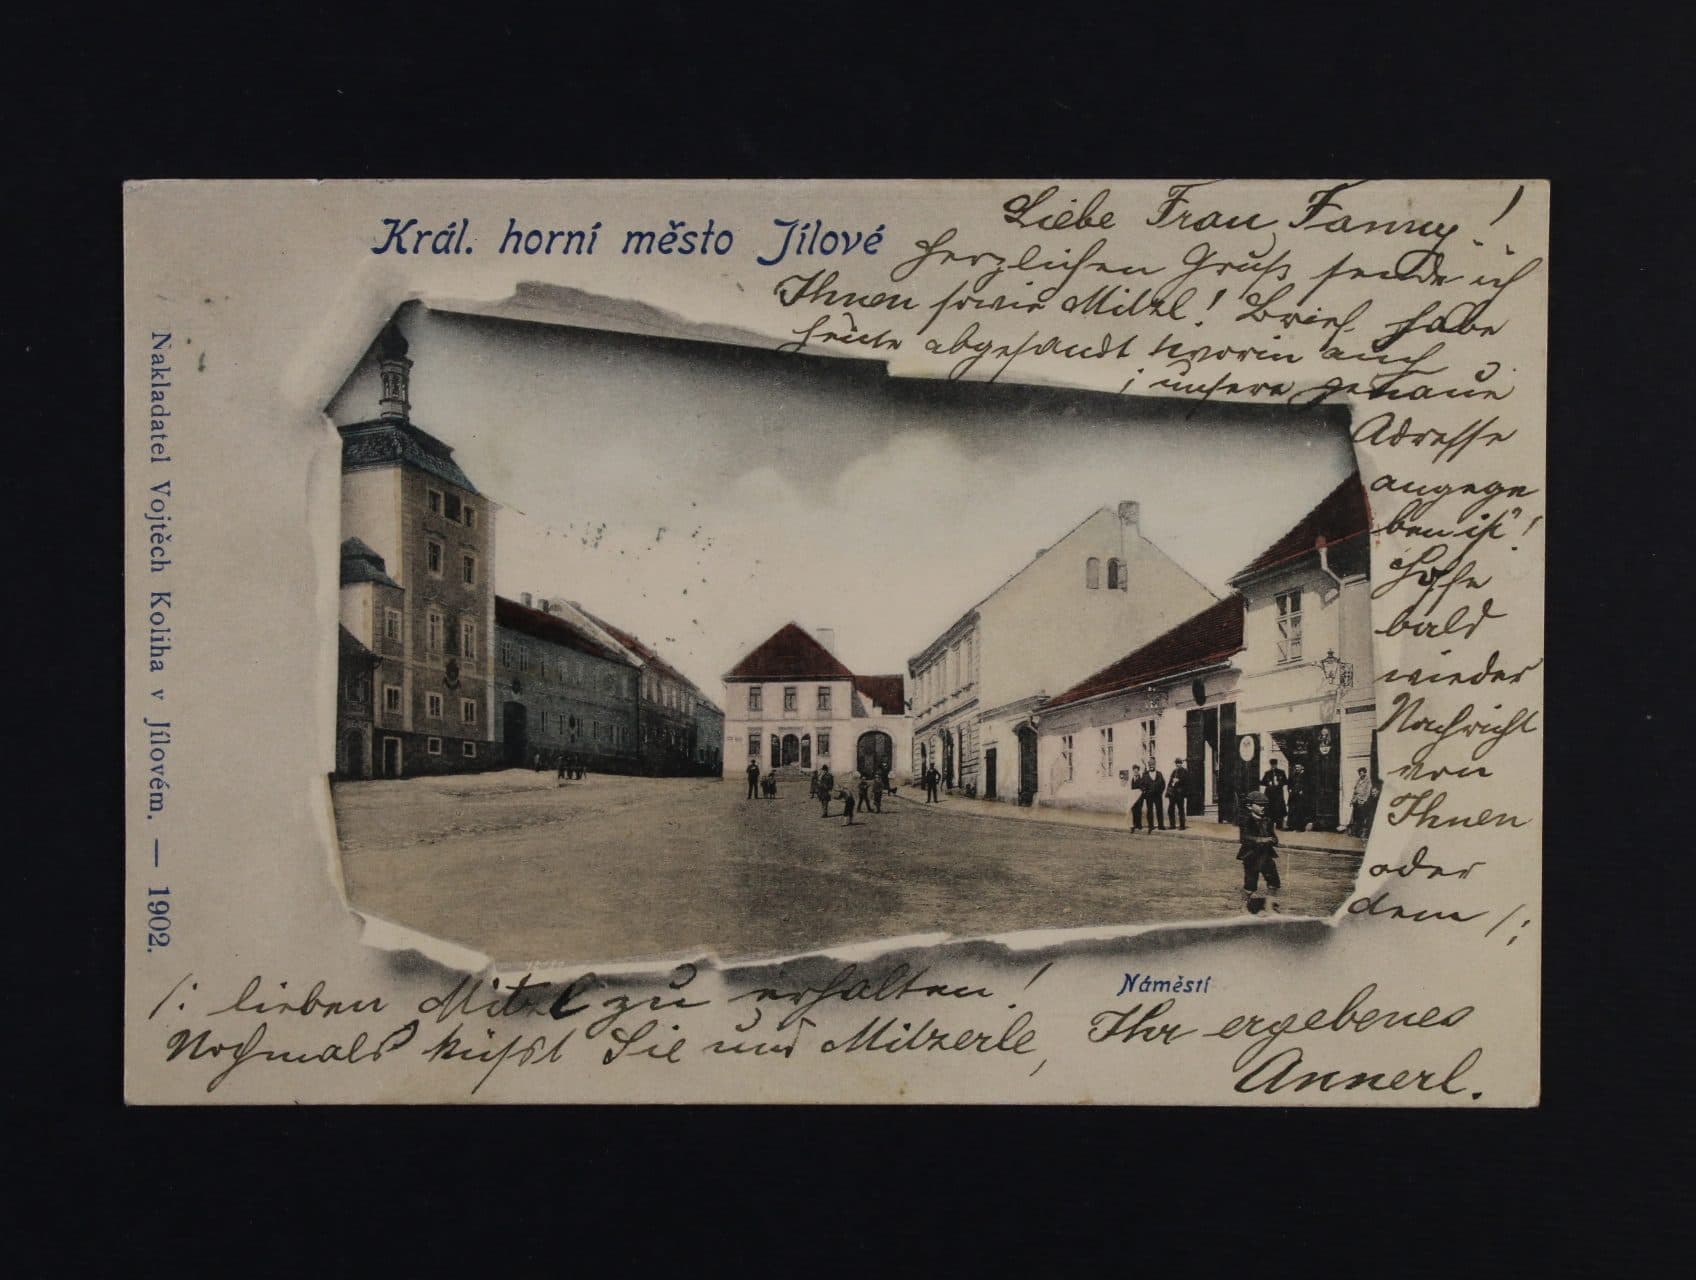 Král. horní město Jílové
Liebe Frau Fanny!
Herzlichen Gruß sende ich
Ihnen sowie Mitzl! Brief habe
heute abgesandt worin auch
unsere genaue
Adresse
angege
ben ist"!
Hoffe
bald
wieder
Nachricht
von
Ihnen
oder
dem /:
/: lieben Mitzl zu erhalten!
Nochmals küsst Sie und Mitzerle,
Ihr ergebenes
Annerl.
Náměstí
Nakladatel Vojtěch Koliha v Jílovém. — 1902.